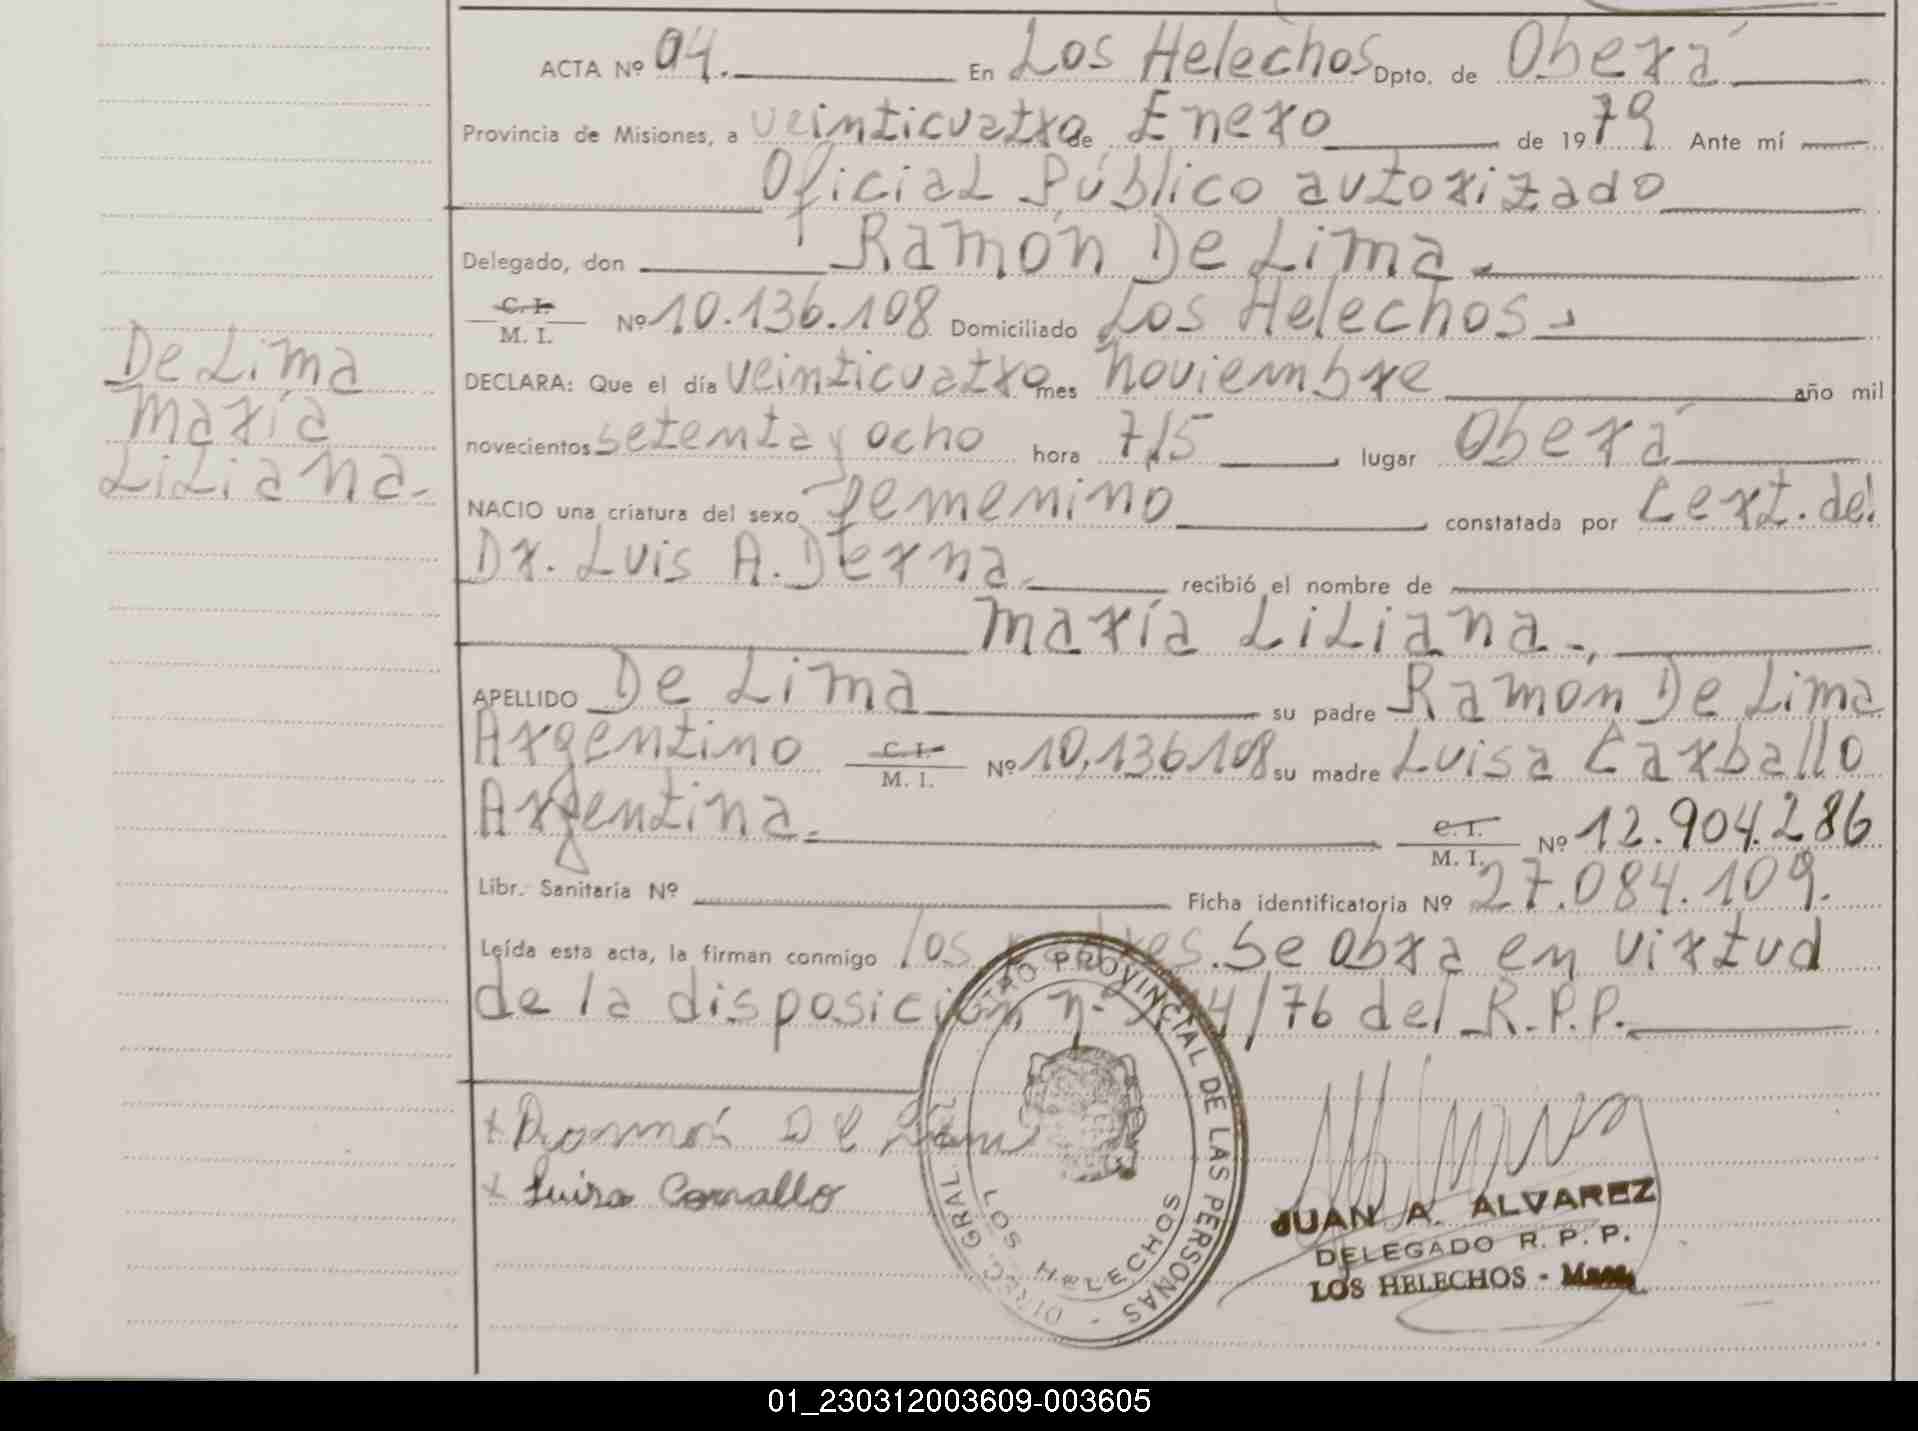 ACTA Nº 04. En Los Helechos Dpto. de Oberá
Provincia de Misiones, a veinticuatro de Enero de 1979 Ante mí
Oficial Público autorizado
Delegado, don Ramón De Lima.
C. I.
M. I. Nº 10.136.108 Domiciliado Los Helechos.
DECLARA: Que el día veinticuatro mes noviembre año mil
novecientos setenta y ocho hora 7/15 lugar Oberá
NACIO una criatura del sexo femenino constatada por Cert. del
Dr. Luis A. Derna. recibió el nombre de
María Liliana.,
APELLIDO De Lima su padre Ramón De Lima
Argentino C. I. M. I. Nº 10.136108 su madre Luisa Carballo
Argentina. C. I. M. I. Nº 12.904.286
Libr. Sanitaria Nº Ficha identificatoria Nº 27.084.109.
Leída esta acta, la firman conmigo los padres. Se obra en virtud
de la disposición n° 4/76 del R.P.P.
De Lima
María
Liliana.
+ Ramón De Lima
+ Luisa Carvallo
DIREC. GRAL. REGISTRO PROVINCIAL DE LAS PERSONAS -
LOS HELECHOS
JUAN A. ALVAREZ
DELEGADO R. P. P.
LOS HELECHOS -
01_230312003609-003605